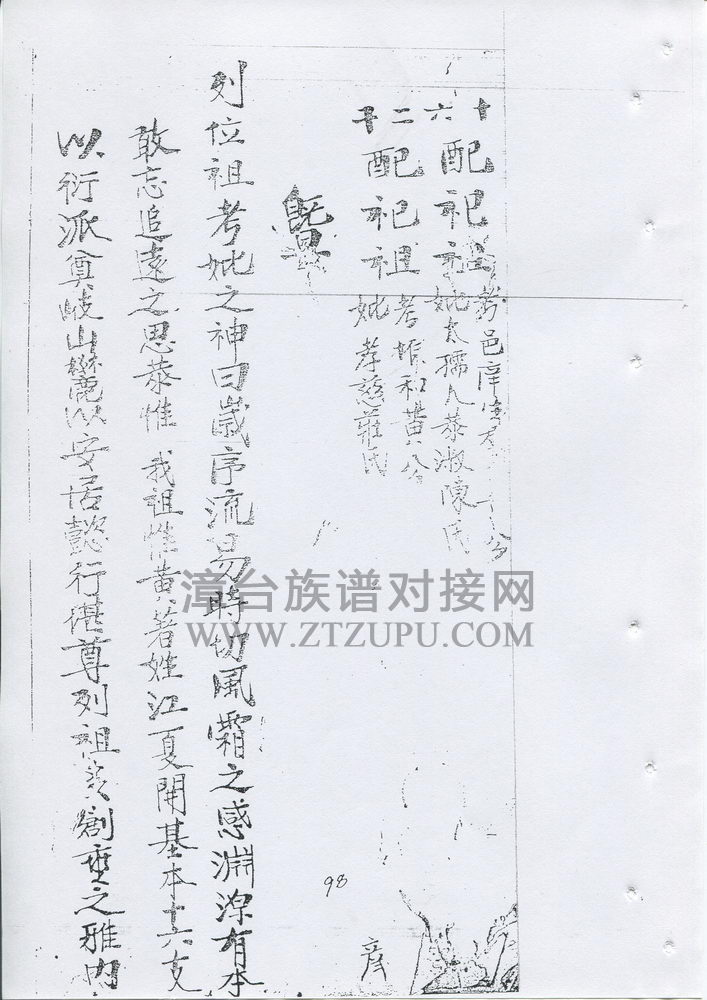 十六配祀祖
考邑庠
妣太孺人恭淑陳氏
二十配祀祖
考 和黃公
妣孝慈莊氏
暨
列位祖考妣之神曰歲序流易時切風霜之感淵深有本
敢忘追遠之思恭惟 我祖惟黃著姓江夏開基本十六支
以衍派奠岐山麓以安居懿行堪尊列祖 創垂之雅內
98
漳台族谱对接网
WWW.ZTZUPU.COM